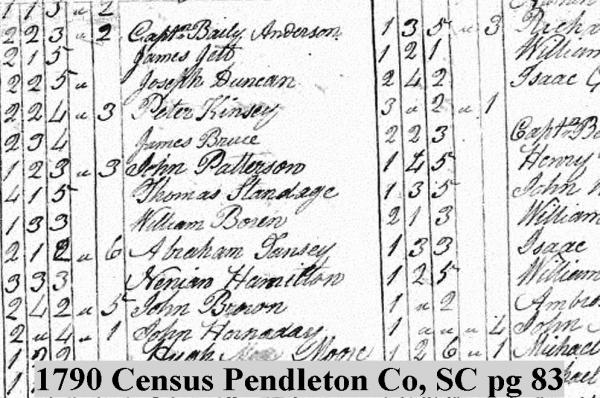 1 1 3 " 2
2 2 3 " 2 Captn. Baily Anderson 1 3 5 " 3 Richa
2 1 5 James Jett 1 2 1 William
2 2 5 " Joseph Duncan 2 4 2 Isaac
2 2 4 " 3 Peter Kinsey 3 " 2 " 1
2 3 4 James Bruce 2 2 3 Captn. Ba
1 2 3 " 3 John Patterson 1 4 5 Henry
4 1 5 Thomas Standage 1 3 5 John
1 3 3 William Boren 2 1 3 William
2 1 2 " 6 Abraham Tansey 1 3 3 Isaac
3 3 3 Nenian Hamilton 1 2 5 William
2 4 2 " 5 John Brown 1 " 2 Ambro
2 " 4 " 1 John Hornaday 1 " " " 4 John
1 2 2 Hugh Moore 1 2 6 " 1 Michael
1790 Census Pendleton Co, SC pg 83